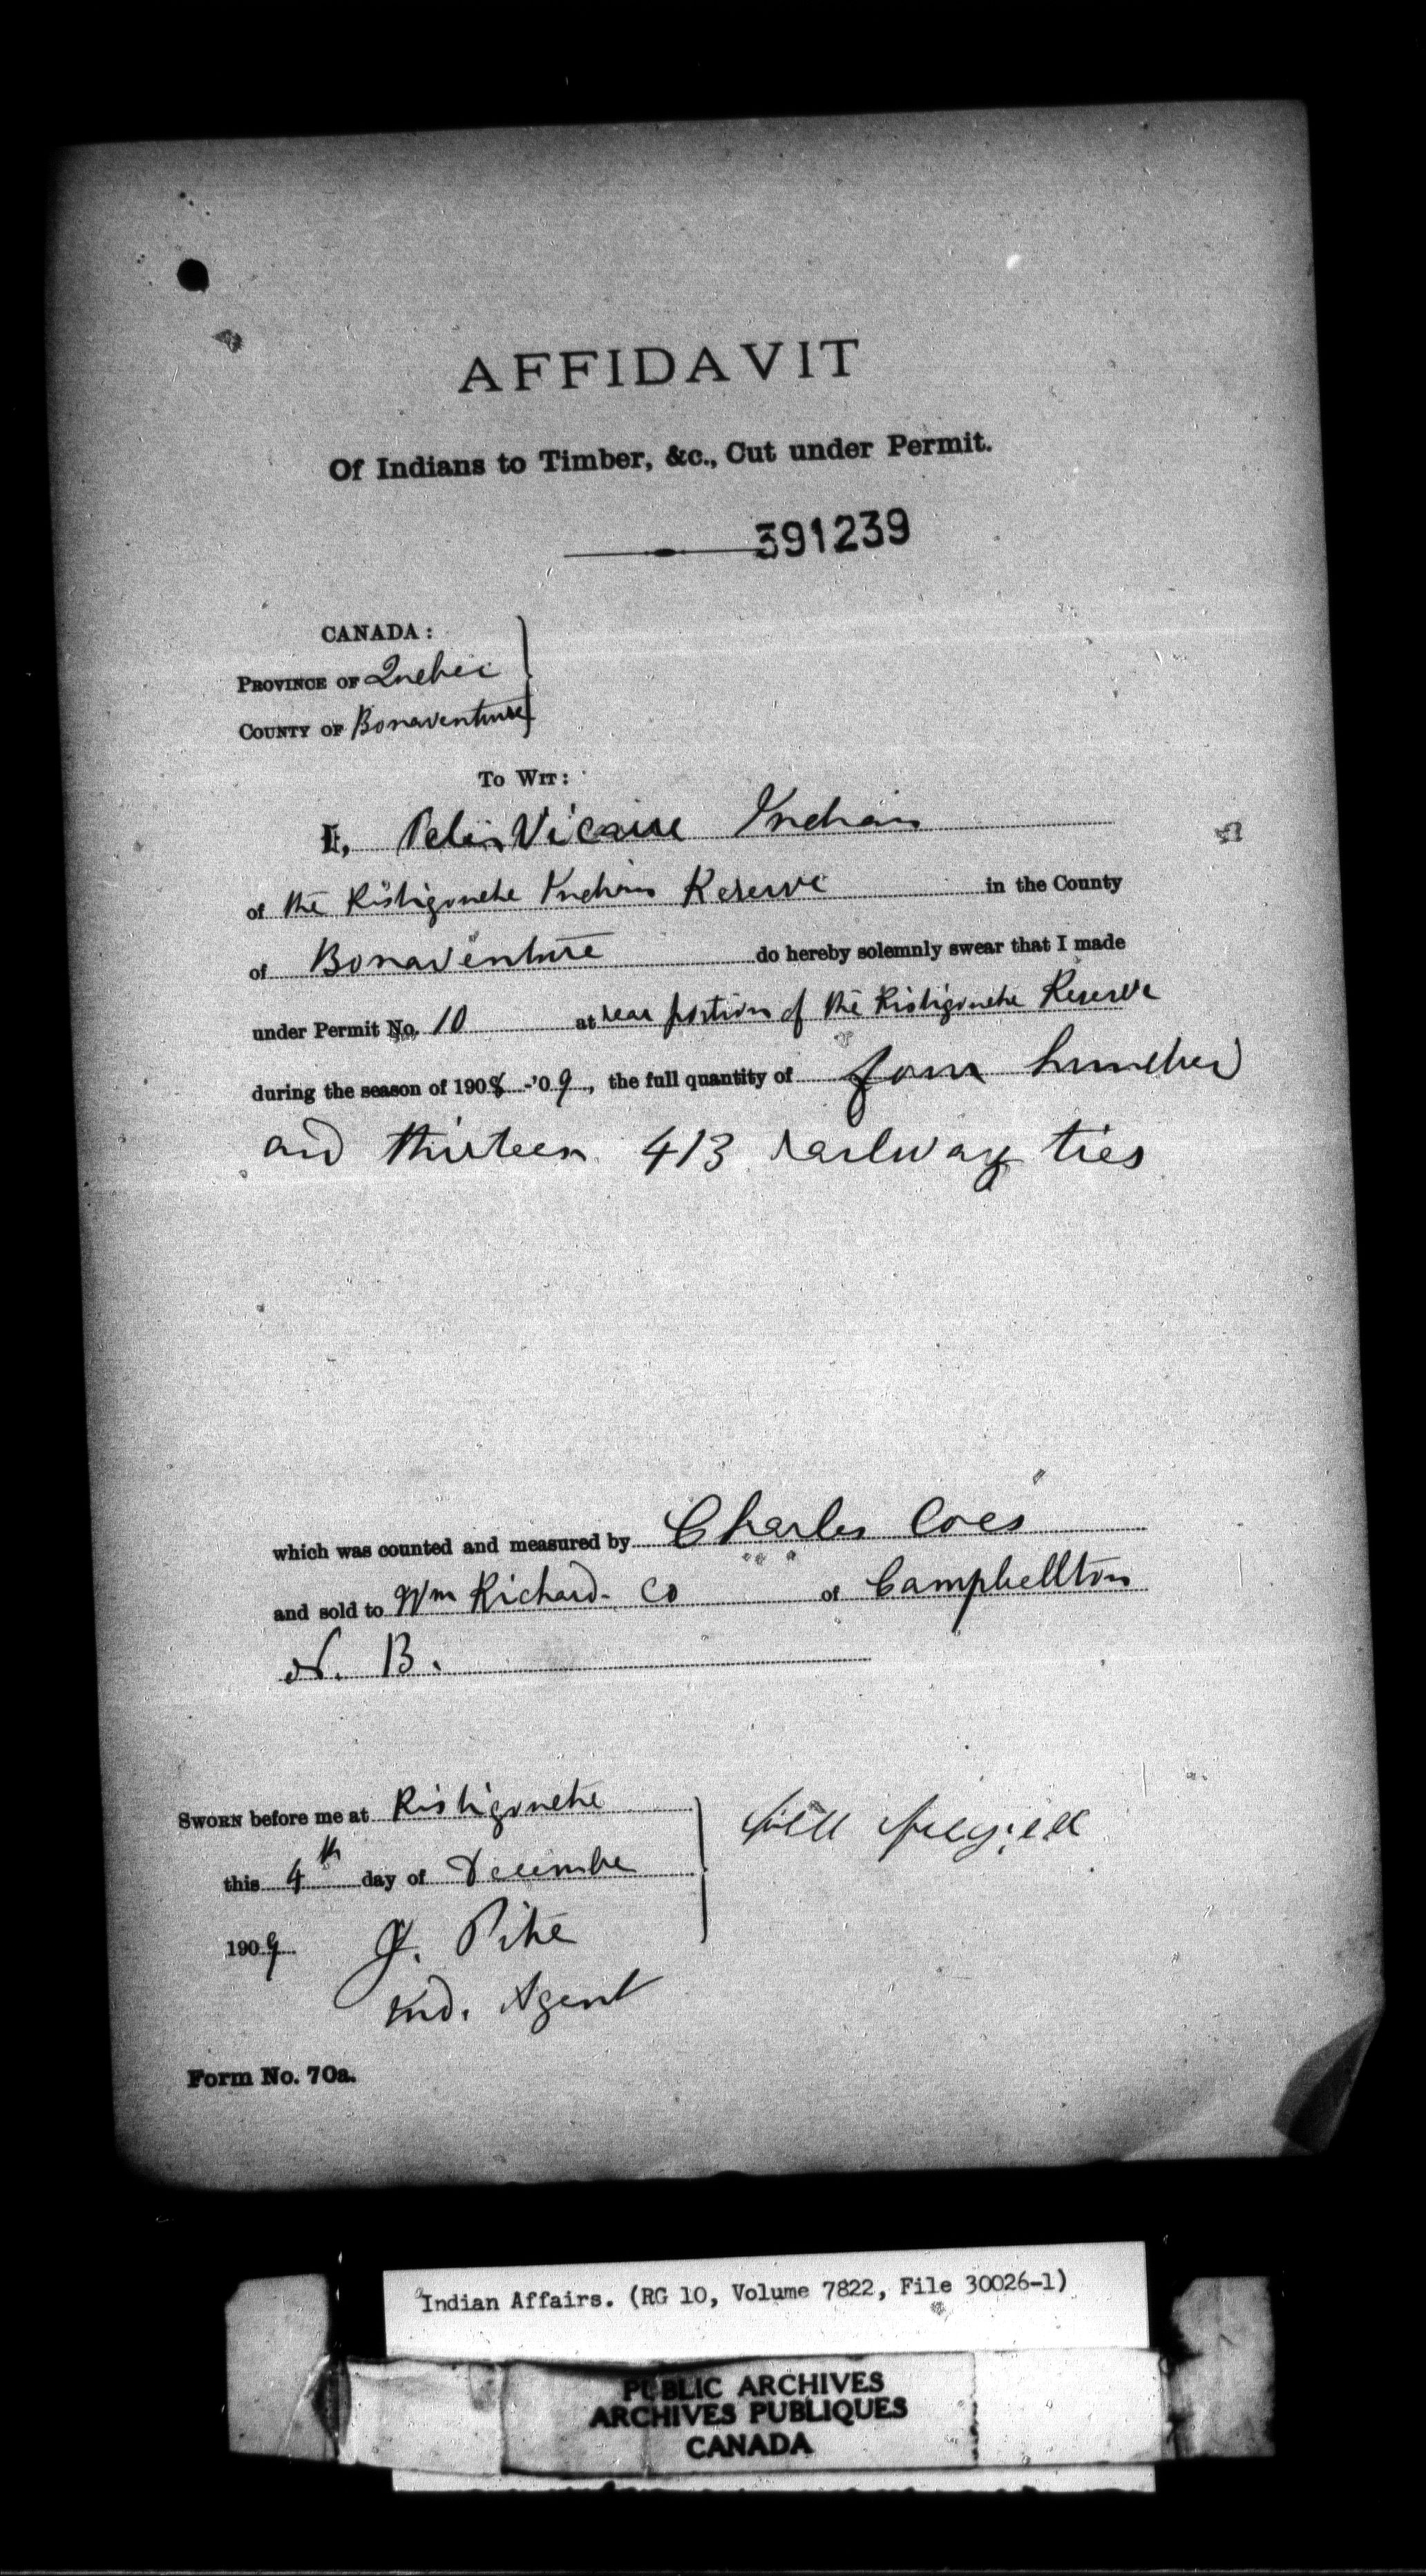 AFFIDAVIT
Of Indians to Timber, &c., Cut under Permit.
391239
CANADA:
PROVINCE OF Quebec
COUNTY OF Bonaventure
TO WIT:
I, Vicaire Indian
of the Ristigouche Indian Reserve in the County
of Bonaventure do hereby solemnly swear that I made
under Permit No. 10 at rear portion of the Ristigouche Reserve
during the season of 1908-'09, the full quantity of four hundred
and thirteen 413 railway ties
which was counted and measured by Charles
and sold to Wm Richard Co of Campbellton
N. B.
SWORN before me at Ristigouche
this 4th day of December
1909 J. Pike
Ind. Agent
Form No. 70a.
Indian Affairs. (RG 10, Volume 7822, File 30026-1)
PUBLIC ARCHIVES
ARCHIVES PUBLIQUES
CANADA